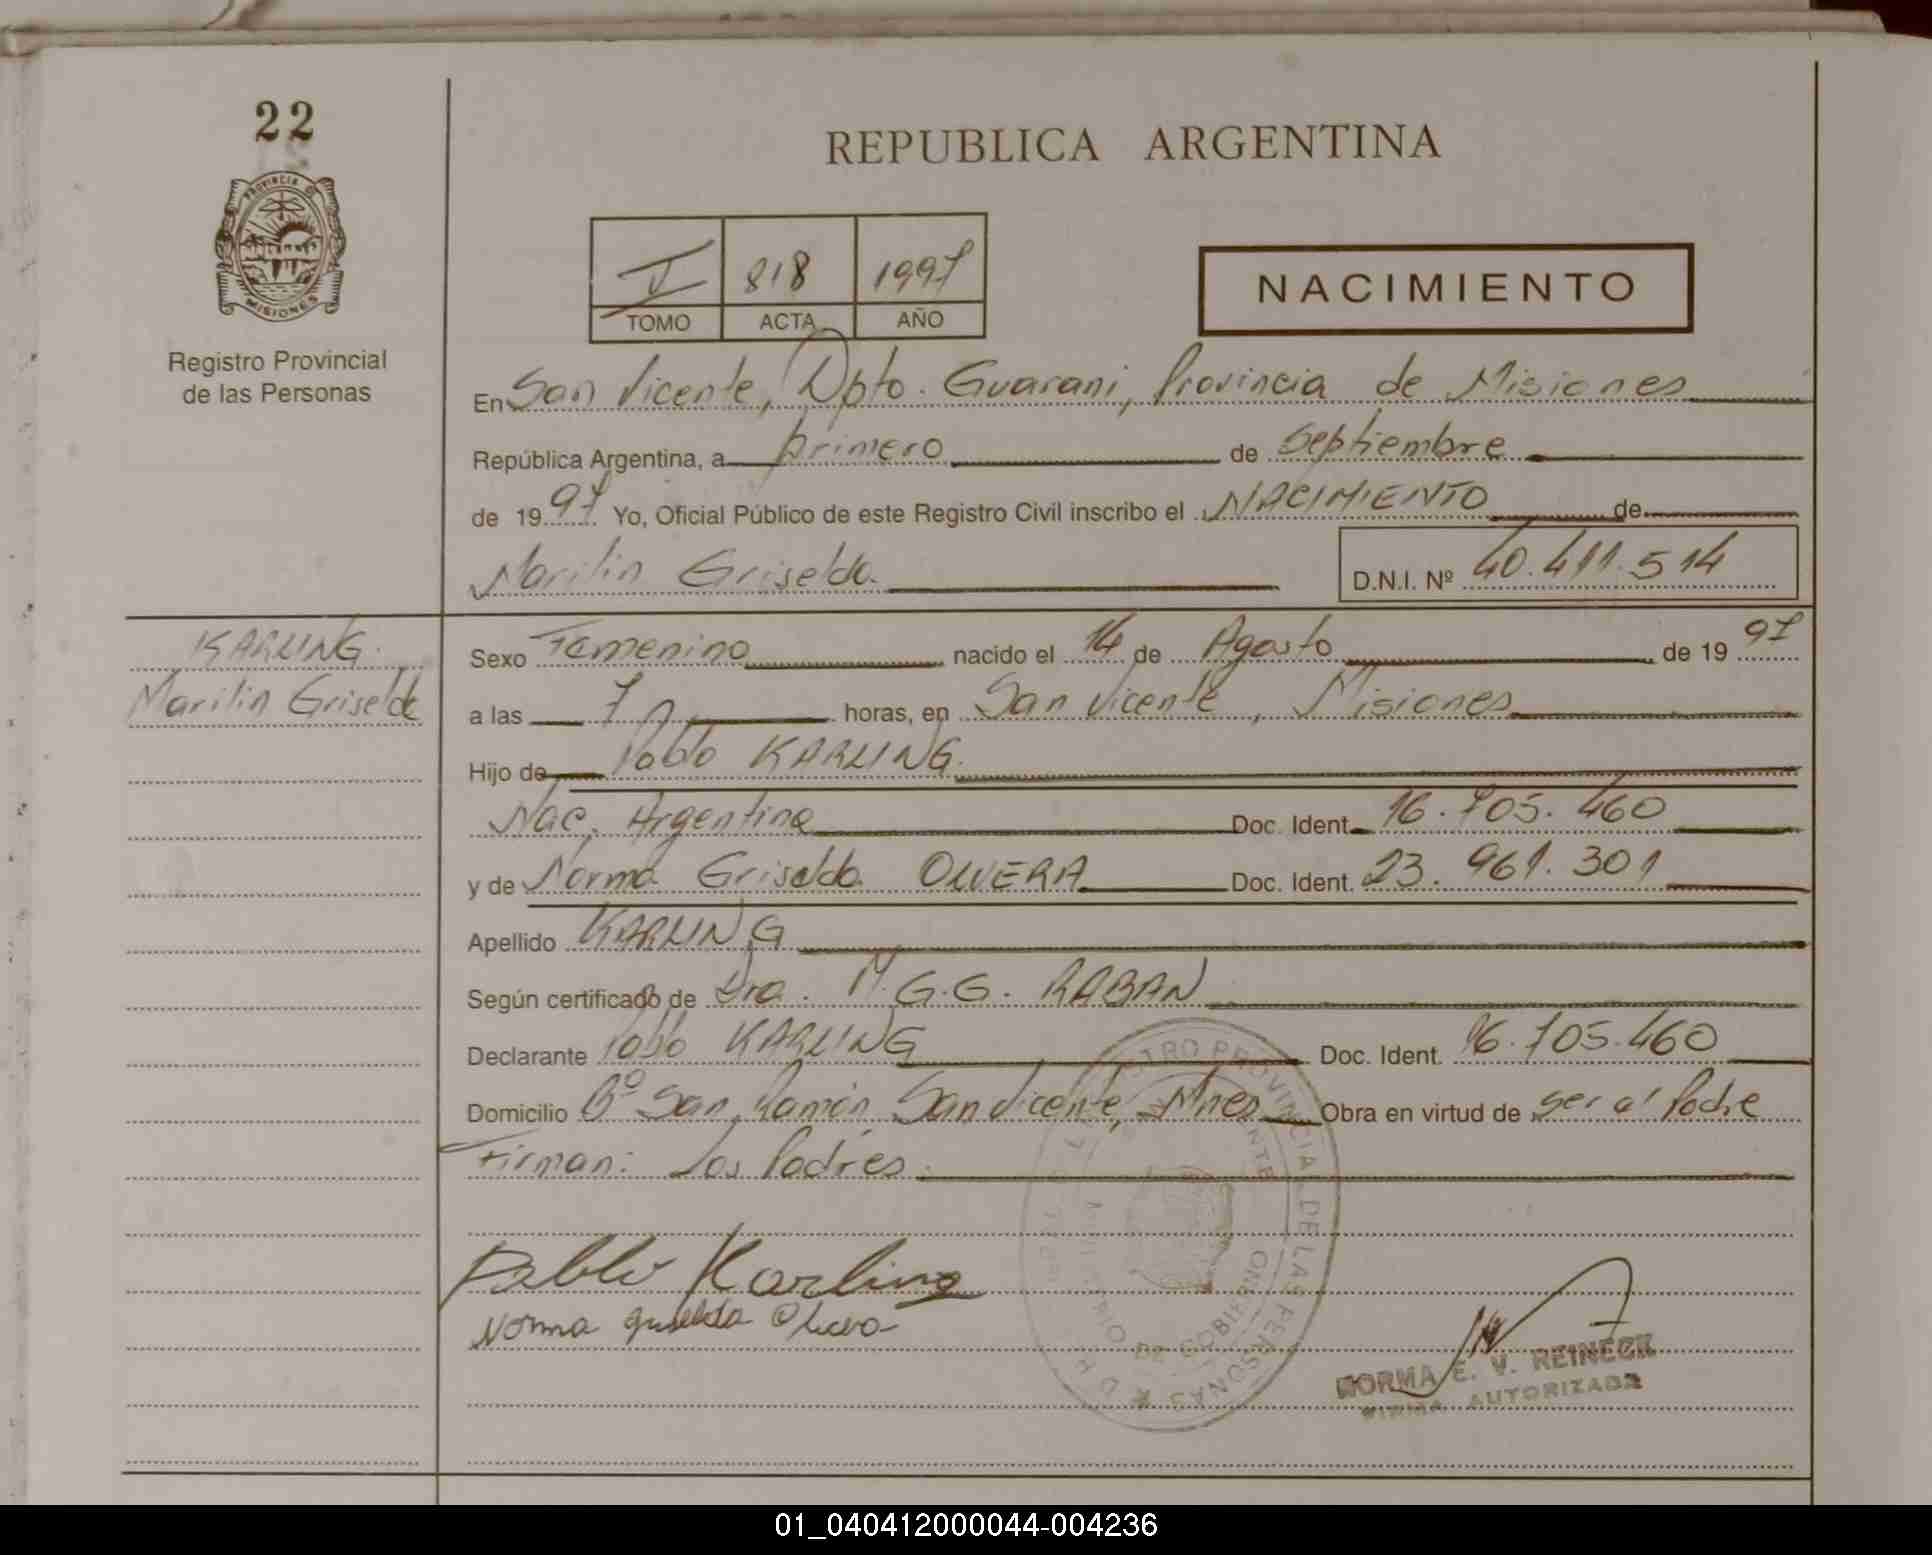 22
PROVINCIA DE
MISIONES
Registro Provincial
de las Personas
REPUBLICA ARGENTINA
V 818 1997
TOMO ACTA AÑO
NACIMIENTO
En San Vicente, Dpto. Guarani, Provincia de Misiones
República Argentina, a primero de Septiembre
de 1997 Yo, Oficial Público de este Registro Civil inscribo el NACIMIENTO de
Marilin Griselda
D.N.I. Nº 40.411.514
KARLING
Marilin Griselda
Sexo Femenino nacido el 14 de Agosto de 1997
a las 7 horas, en San Vicente, Misiones
Hijo de Pablo KARLING
Nac. Argentina Doc. Ident. 16.705.460
y de Norma Griselda OLIVERA Doc. Ident. 23.961.301
Apellido KARLING
Según certificado de Dra. M.G.G. RABAN
Declarante Pablo KARLING Doc. Ident. 16.705.460
Domicilio Bº San Ramón San Vicente, Mnes Obra en virtud de ser el Padre
Firman: Los Padres.
Pablo Karling
Norma Griselda
REGISTRO PROVINCIAL DE LAS PERSONAS
SAN VICENTE
MINISTERIO DE GOBIERNO
NORMA E. V. REINECK
FIRMA AUTORIZADA
01_040412000044-004236